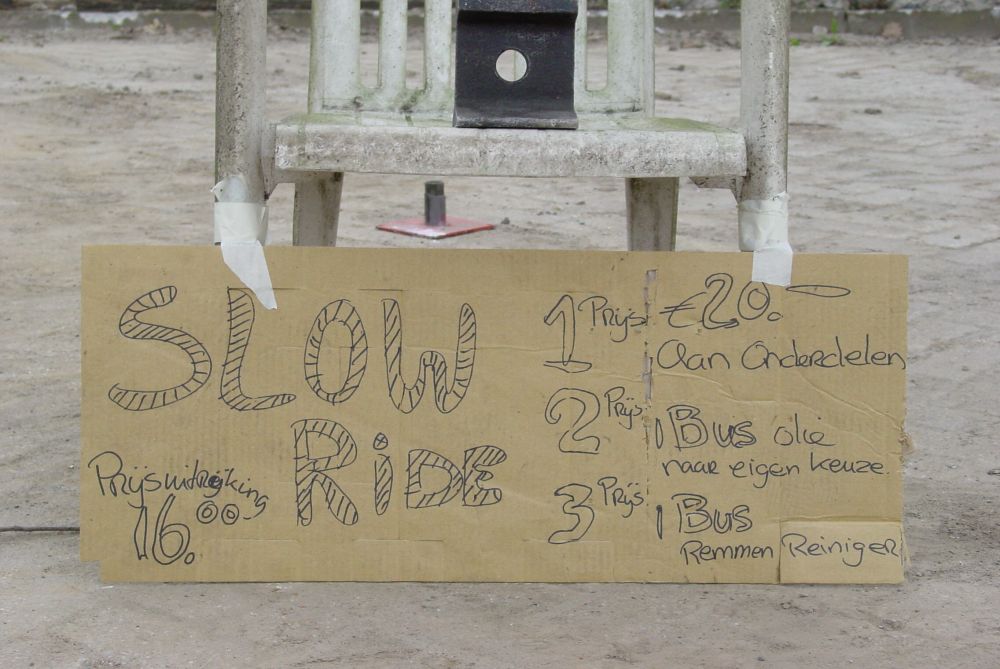 SLOW
RiDE
Prijsuitreiking
16.00
1 Prijs €20.-
aan Onderdelen
2 Prijs 1 Bus olie
naar eigen keuze.
3 Prijs 1 Bus
Remmen Reiniger